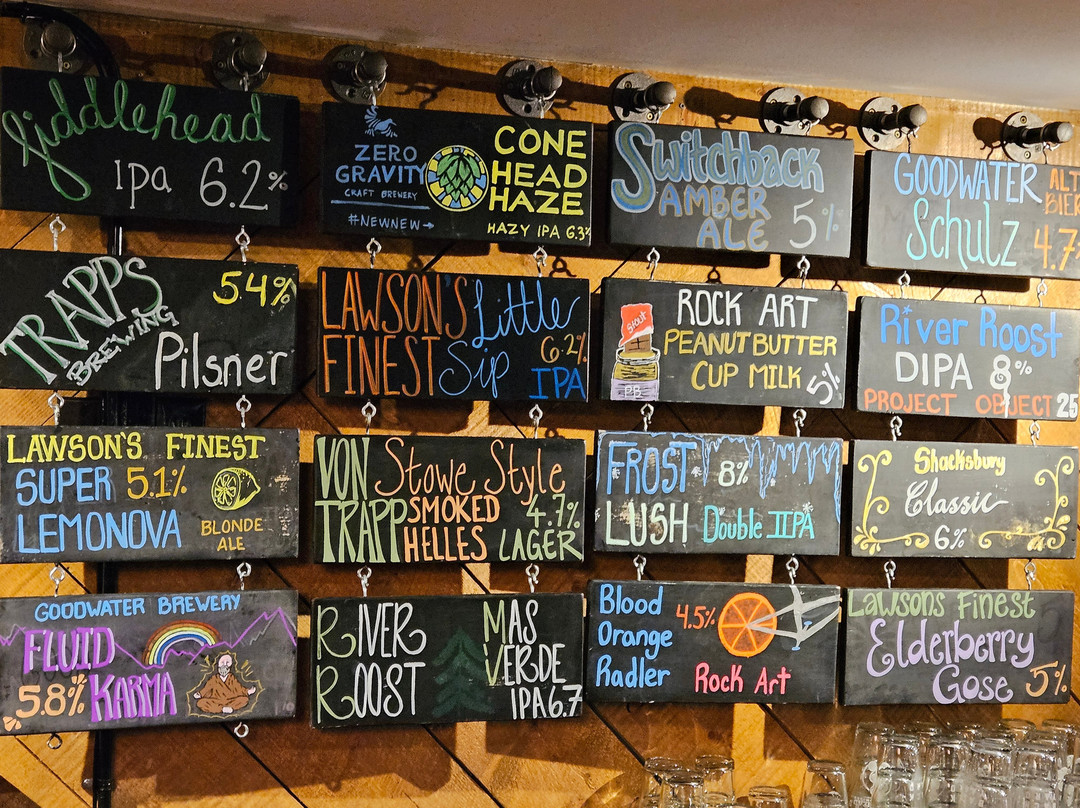 fiddlehead
ipa 6.2%
ZERO GRAVITY
CRAFT BREWERY
#NEWNEW→
CONE
HEAD
HAZE
HAZY IPA 6.3%
Switchback
AMBER
ALE 5%
GOODWATER
Schulz
ALT
BIER
4.7%
TRAPPS
BREWING
5.4%
Pilsner
LAWSON'S
FINEST
Little
Sip
6.2%
IPA
Stout
PB
ROCK ART
PEANUT BUTTER
CUP MILK 5%
River Roost
DIPA 8%
PROJECT OBJECT 25
LAWSON'S FINEST
SUPER 5.1%
LEMONOVA
BLONDE
ALE
VON
TRAPP
Stowe Style
SMOKED
HELLES
4.7%
LAGER
FROST 8%
LUSH Double IIPA
Shacksbury
Classic
6%
GOODWATER BREWERY
FLUID
5.8% KARMA
RIVER
ROOST
MAS
VERDE
IPA 6.7
Blood
Orange
Radler
4.5%
Rock Art
Lawsons Finest
Elderberry
Gose 5%